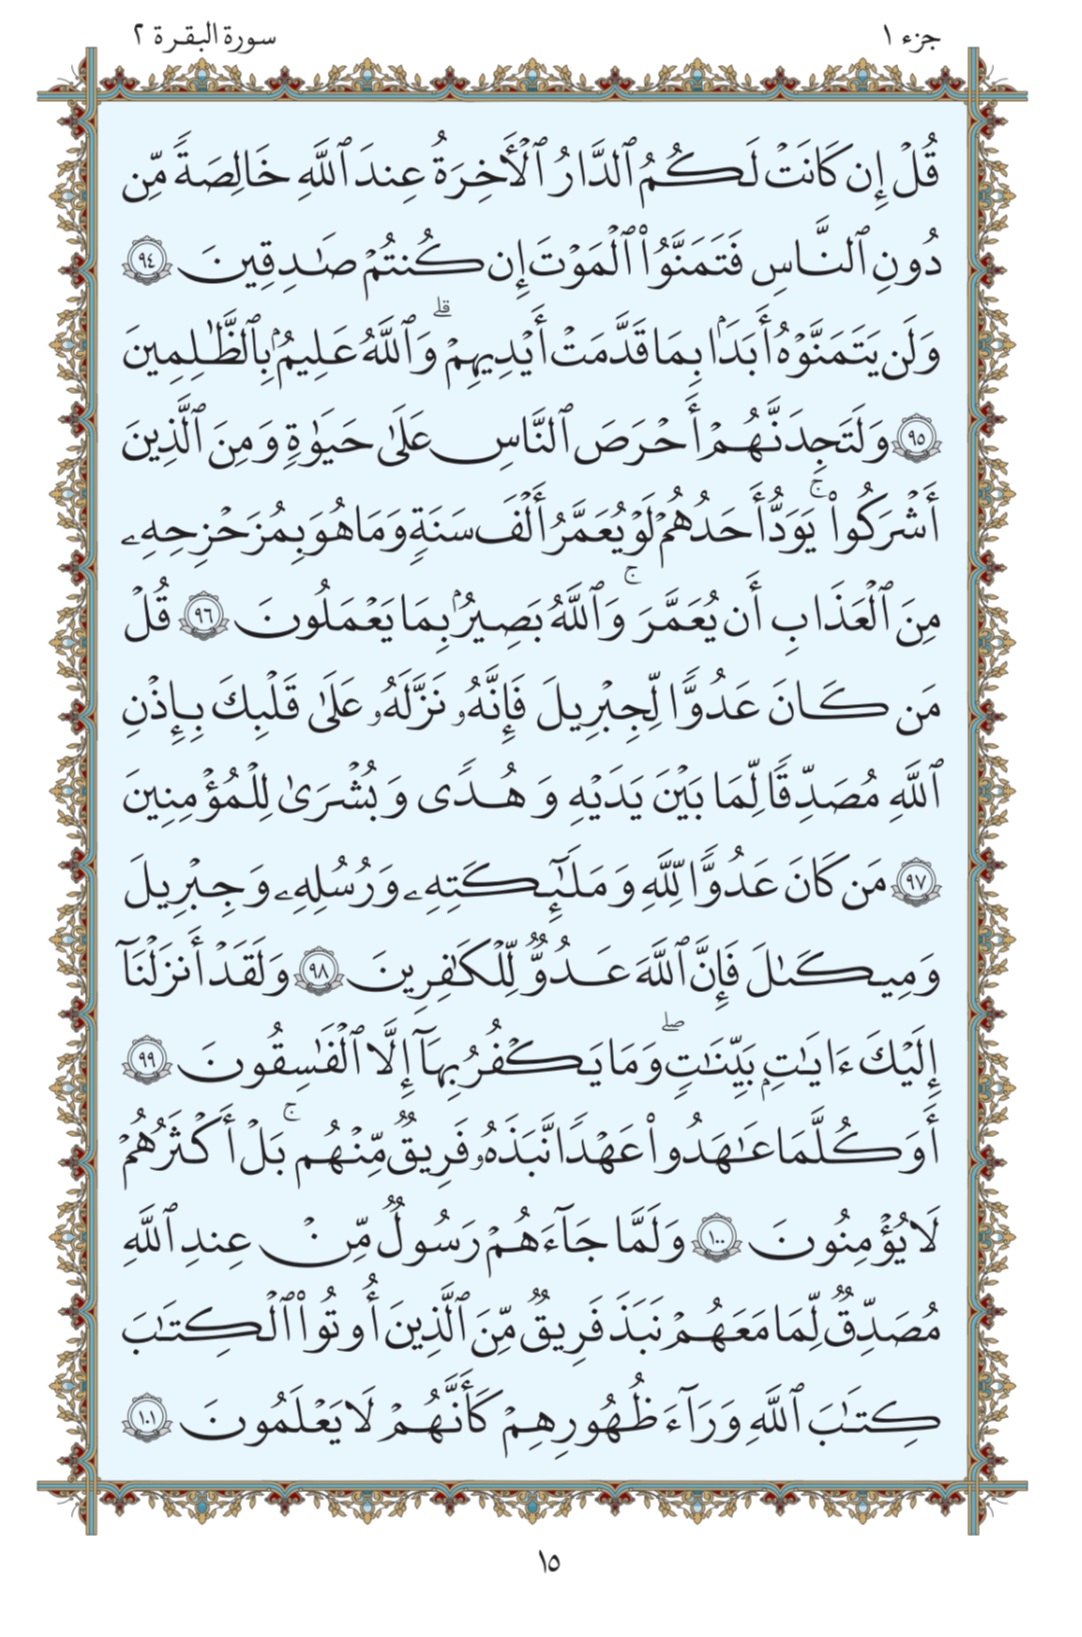 جزء ١
سورة البقرة ٢
قُلْ إِن كَانَتْ لَكُمُ ٱلدَّارُ ٱلْأَخِرَةُ عِندَ ٱللَّهِ خَالِصَةً مِّن
دُونِ ٱلنَّاسِ فَتَمَنَّوُا۟ ٱلْمَوْتَ إِن كُنتُمْ صَـٰدِقِينَ ٩٤
وَلَن يَتَمَنَّوْهُ أَبَدًۢا بِمَا قَدَّمَتْ أَيْدِيهِمْ ۗ وَٱللَّهُ عَلِيمٌۢ بِٱلظَّـٰلِمِينَ
٩٥ وَلَتَجِدَنَّهُمْ أَحْرَصَ ٱلنَّاسِ عَلَىٰ حَيَوٰةٍ وَمِنَ ٱلَّذِينَ
أَشْرَكُوا۟ ۚ يَوَدُّ أَحَدُهُمْ لَوْ يُعَمَّرُ أَلْفَ سَنَةٍ وَمَا هُوَ بِمُزَحْزِحِهِۦ
مِنَ ٱلْعَذَابِ أَن يُعَمَّرَ ۚ وَٱللَّهُ بَصِيرٌۢ بِمَا يَعْمَلُونَ ٩٦ قُلْ
مَن كَانَ عَدُوًّا لِّجِبْرِيلَ فَإِنَّهُۥ نَزَّلَهُۥ عَلَىٰ قَلْبِكَ بِإِذْنِ
ٱللَّهِ مُصَدِّقًا لِّمَا بَيْنَ يَدَيْهِ وَهُدًى وَبُشْرَىٰ لِلْمُؤْمِنِينَ
٩٧ مَن كَانَ عَدُوًّا لِّلَّهِ وَمَلَـٰٓئِكَتِهِۦ وَرُسُلِهِۦ وَجِبْرِيلَ
وَمِيكَىٰلَ فَإِنَّ ٱللَّهَ عَدُوٌّ لِّلْكَـٰفِرِينَ ٩٨ وَلَقَدْ أَنزَلْنَآ
إِلَيْكَ ءَايَـٰتٍۭ بَيِّنَـٰتٍ ۖ وَمَا يَكْفُرُ بِهَآ إِلَّا ٱلْفَـٰسِقُونَ ٩٩
أَوَكُلَّمَا عَـٰهَدُوا۟ عَهْدًا نَّبَذَهُۥ فَرِيقٌ مِّنْهُم ۚ بَلْ أَكْثَرُهُمْ
لَا يُؤْمِنُونَ ١٠٠ وَلَمَّا جَآءَهُمْ رَسُولٌ مِّنْ عِندِ ٱللَّهِ
مُصَدِّقٌ لِّمَا مَعَهُمْ نَبَذَ فَرِيقٌ مِّنَ ٱلَّذِينَ أُوتُوا۟ ٱلْكِتَـٰبَ
كِتَـٰبَ ٱللَّهِ وَرَآءَ ظُهُورِهِمْ كَأَنَّهُمْ لَا يَعْلَمُونَ ١٠١
١٥